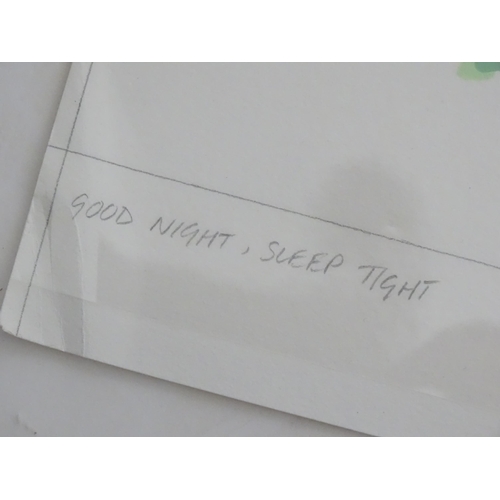 GOOD NIGHT, SLEEP TIGHT